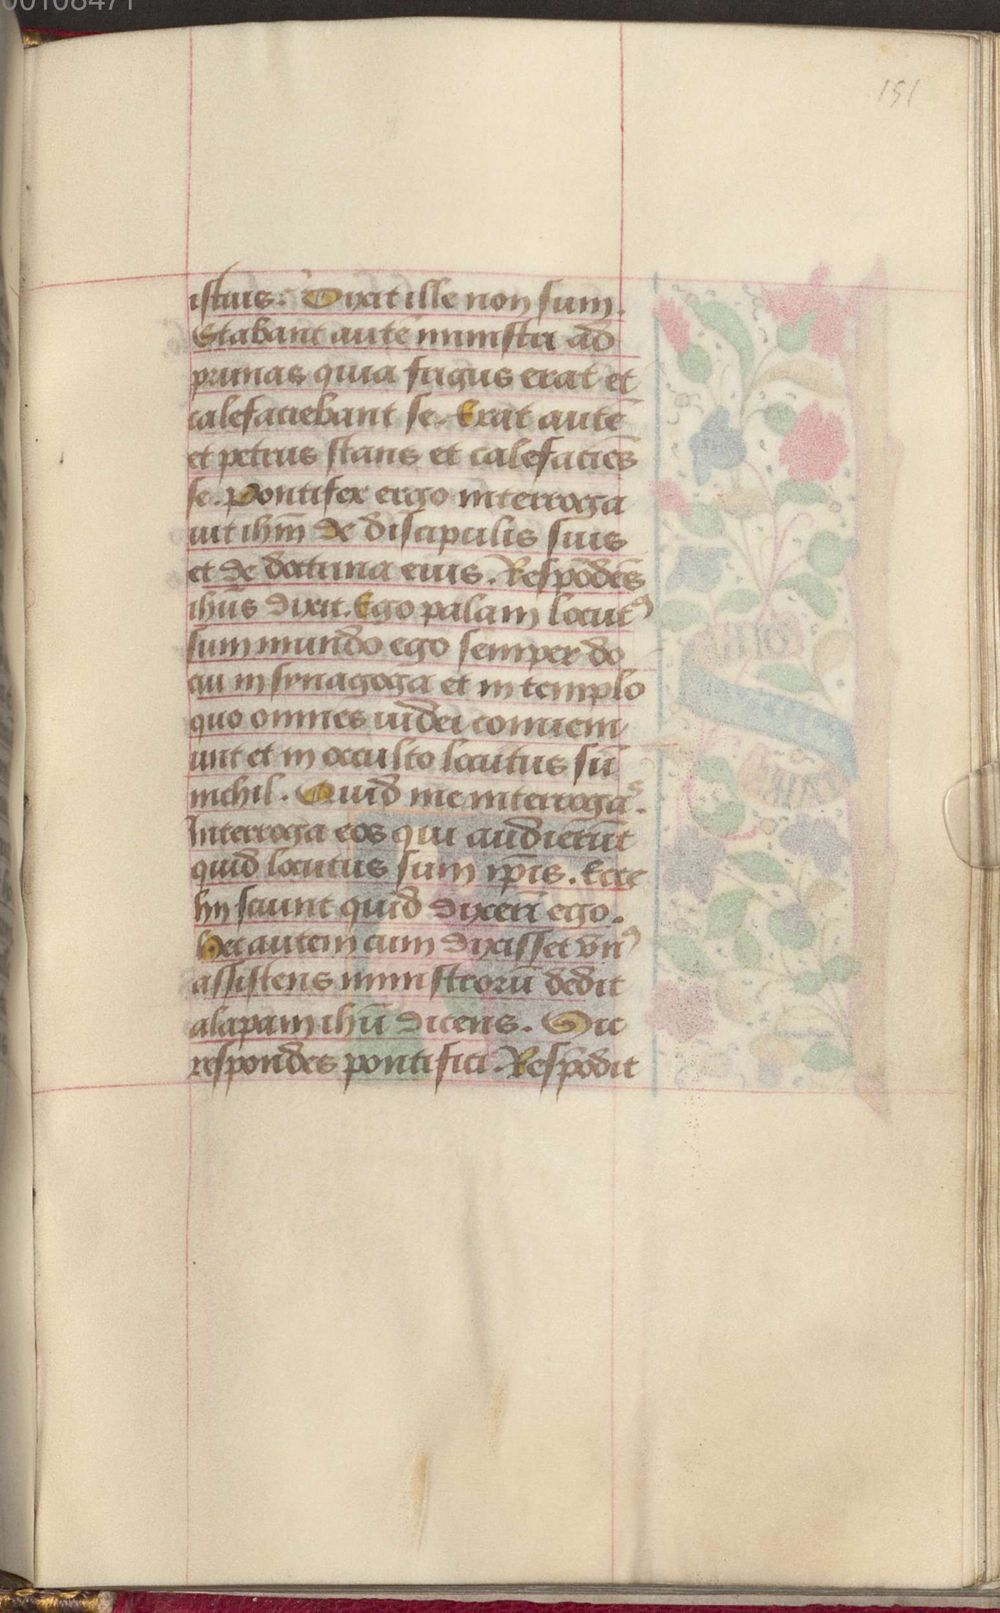 00108471
151
istius. Dixit ille non sum.
Stabant autē ministri ad
prunas quia frigus erat et
calefaciebant se. Erat autē
et petrus stans et calefaciēs
se. Pontifex ergo interroga
uit ihm̄ de discipulis suis
et de doctrina eius. Respōdēs
ihūs dixit. Ego palam locutꝰ
sum mundo ego semper do
cui in synagoga et in templo
quo omnes iudei conueni
unt et in occulto locutus sū
nichil. Quid me interrogas.
Interroga eos qui audierūt
quid locutus sum ip̄is. Ecce
hij sciunt quid dixerī ego.
Hec autem cum dixisset vnꝰ
assistens ministrorū dedit
alapam ihū dicens. Sic
respondes pontifici. Respōdit